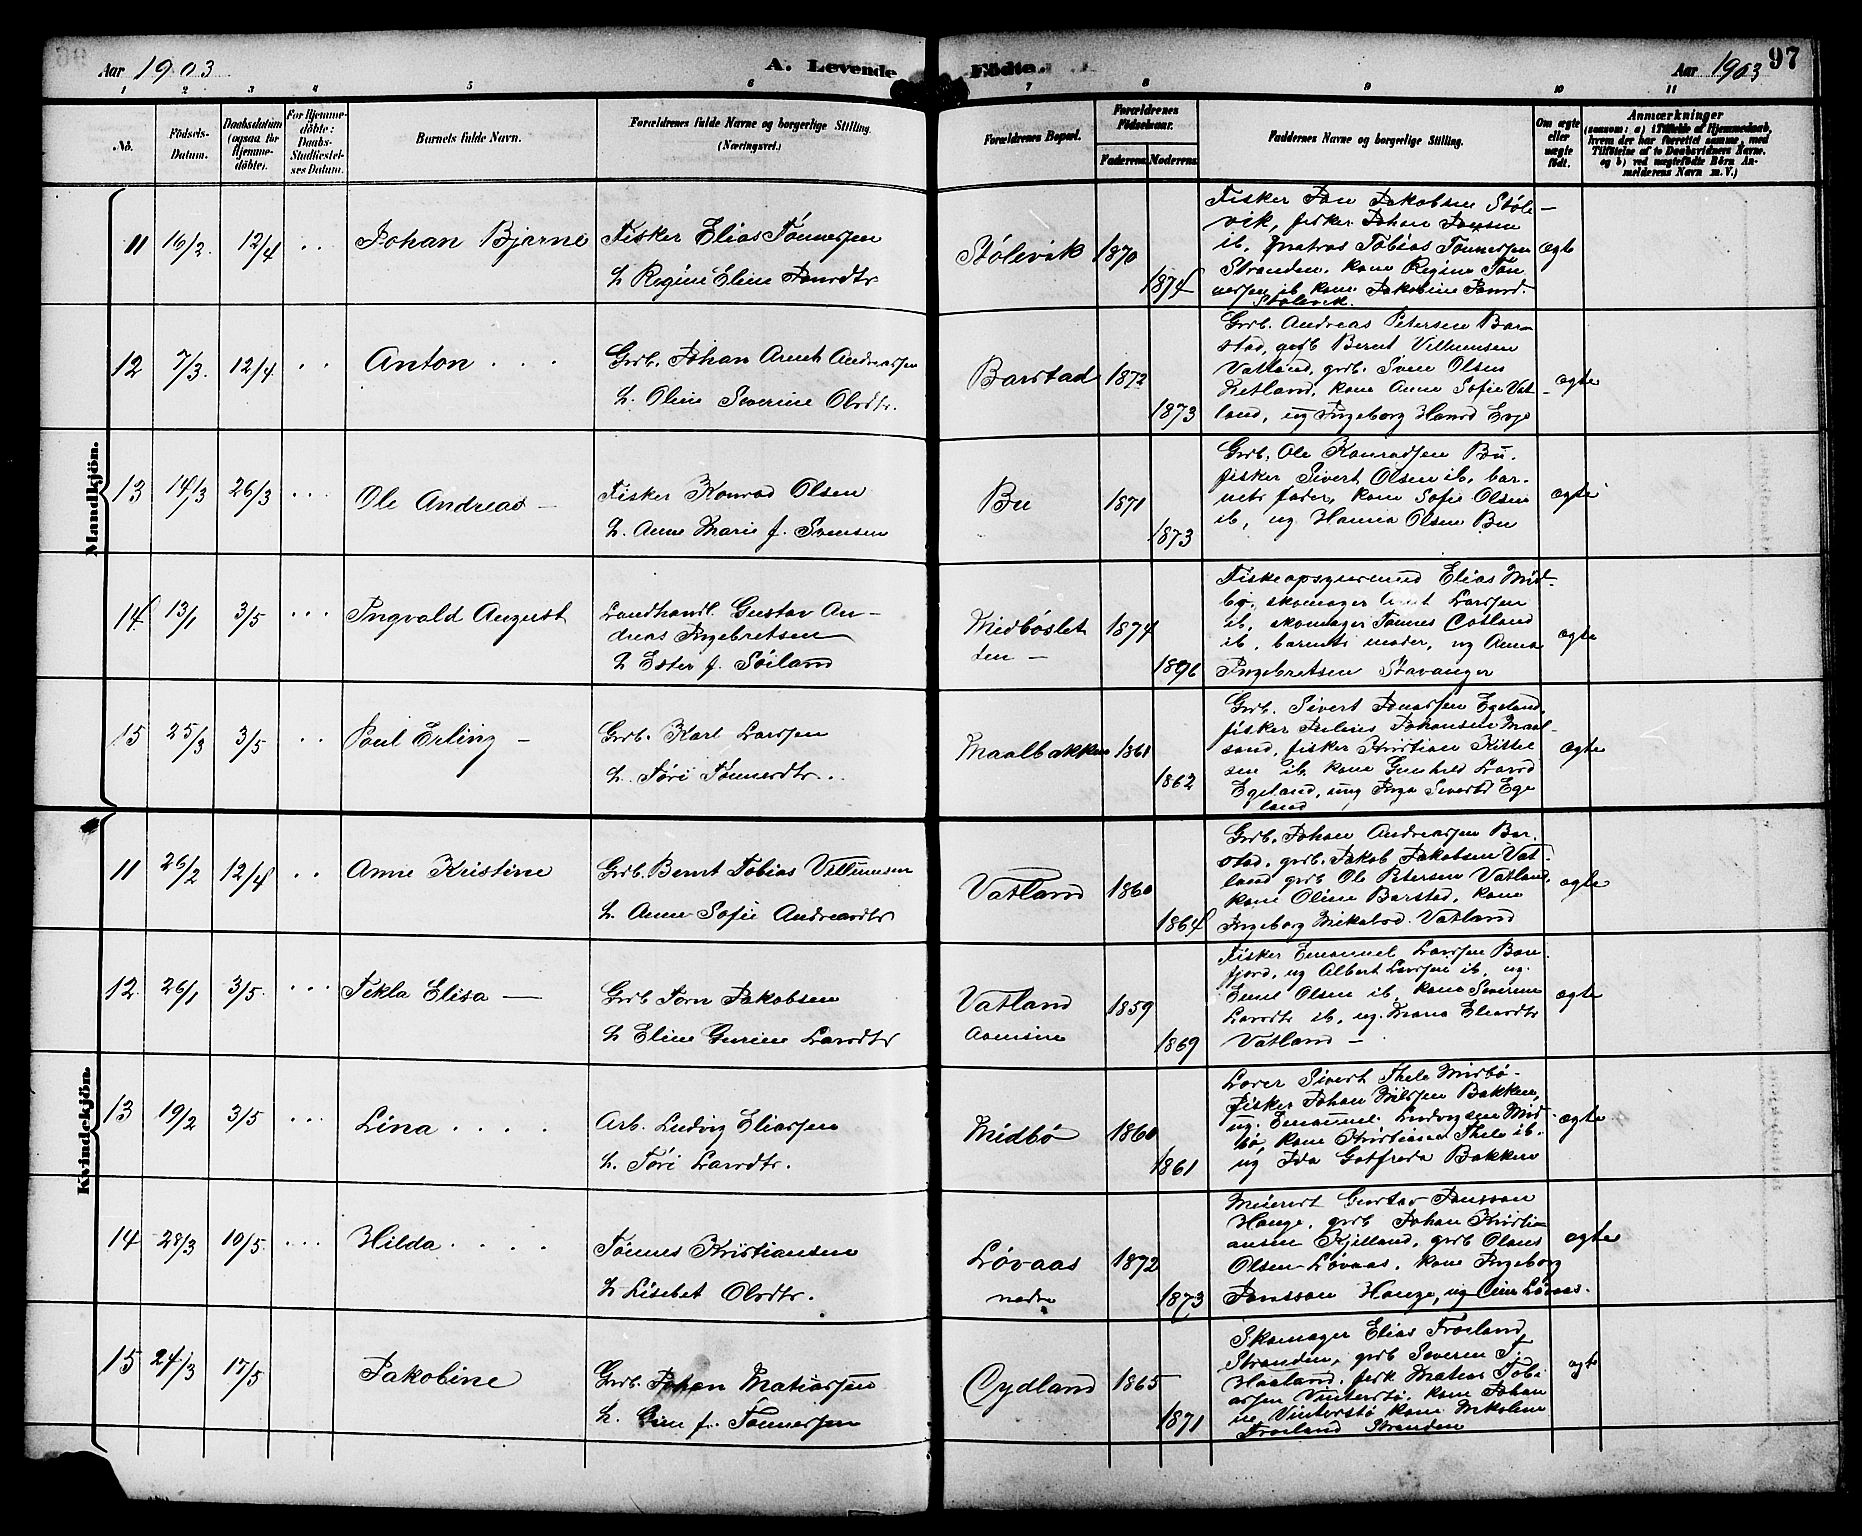 Aar 1903
A. Levende
Födte.
Aar 1903
97
1 2 3 4 5 6 7 8 9 10 11
No.
Födsels-Datum.
Daabsdatum (ogsaa for Hjemmedöbte).
For Hjemmedöbte: Daabs-Stadfæstelses Datum.
Barnets fulde Navn.
Forældrenes fulde Navne og borgerlige Stilling. (Næringsvei.)
Forældrenes Bopæl.
Forældrenes Födselsaar.
Faderens. Moderens.
Faddernes Navne og borgerlige Stilling.
Om ægte eller uægte födt.
Anmærkninger
(saasom: a) i Tilfælde af Hjemmedaab, hvem der har forrettet samme, med Tilföielse af to Daabsvidners Navne, og b) ved uægtefödte Börn Anmelderens Navn m. V.)
Mandkjön.
11 16/2. 12/4 Johan Bjarne
Fisker Elias Tönnessen
h. Regine Eline Jansdtr
Stölevik 1870
1874
Fisker Jan Jakobsen Störe-
vik, fisker Johan Jansen
ib, matros Tobias Tönnessen
Stranden, kone Regine Tön
nessen ib, kone Jakobine Jansd.
Stölevik.
ægte
12 7/3. 12/4 Anton
Grb. Johan Arent Andreassen
h. Oline Severine Olsdtr.
Barstad 1872
1873
Grb. Andreas Petersen Bar-
stad, grb Bernt Villumsen
Vatland, grb. Sven Olsen
Zetland, kone Anne Sofie Vat-
land, ug Ingeborg Hansd Ege
ægte
13 14/3 26/3 Ole Andreas –
Fisker Konrad Olsen
h. Anne Marie f. Svensen
Bu 1871
1873
Grb. Ole Konradsen Bu.
fisker Sivert Olsen ib, bar-
nets fader, kone Sofie Olsen
ib, ug Hanna Olsen Bu
ægte
14 13/1 3/5 Ingvald August
Landhandl. Gustav An-
dreas Ingebretsen
h Ester f. Söiland
Midböslet
ten – 1874
1896
Fiskeopsynsmand Elias Mid-
bö, skomager Arnt Larssen
ib, skomager Tönnes
ib, barnets moder, ug Anna
Ingebretsen Stavanger
ægte
15 25/3 3/5 Paul Erling –
Grb. Karl Larssen
h. Töri Tönnesdtr.
Maalbakken 1861
1862
Grb. Sivert Jonassen Egeland,
fisker Julius Johansen Maal-
sand, fisker Kristian Kittel
sen ib, kone Gunhild Larsd
Egeland, ung Inga Sivertsd Ege
land
ægte
Kvindekjön.
11 26/2 12/4 Anne Kristine
Grb. Bernt Tobias Villumsen
h. Anne Sofie Andreasdtr
Vatland 1860
1864
Grb. Johan Andreassen Bar.
stad, grb. Jakob Jakobsen Vat-
land grb Ole Petersen Vatland.
kone Oline Barstad, kone
Ingeborg Mikalsd. Vatland
ægte
12. 26/1 3/5. Tekla Elisa –
Grb Törn Jakobsen
h Eline Gurine Larsdtr
Vatland
1859
1869
Fisker Emanuel Larssen
fjord, ug Albert Larssen ib, ug.
Emil Olsen ib, kone Severine
Larsdtr ib, ug. Maria Eliasdtr
Vatland –
ægte
13 19/2 3/5 Lina
Arb. Ludvig Eliassen
h. Töri Larsdtr.
Midbö 1860
1861
Lærer Sivert Thele Midbö-
fisker Johan Nilssen Bakken,
ug. Emanuel Ludvigsen Mid-
bö, kone Kristiane Thele ib.
ug Ida Gotfreda Bakken
ægte
14 28/3 10/5. Hilda
Tönnes Kristiansen
h Lisebet Olsdtr.
Lövaas
nedre 1872
1873
Meierert Gustav Jonsson
Hauge, grb Johan Kristi-
ansen Kjelland, grb Olaus
Olsen Lövaas, kone Ingeborg
Jonsson Hauge, ug Lövaas.
ægte
15 24/3 17/5 Jakobine
Grb. Johan Matiassen
h. f. Tönnessen
Eydland 1865
1871
Skomager Elias Fröiland
Stranden, grb Severin T.
Haaland. fisk Matias Tobi
assen Vinterstö, kone Johan
ne Vinterstö kone Nikoline
Fröiland Stranden
ægt